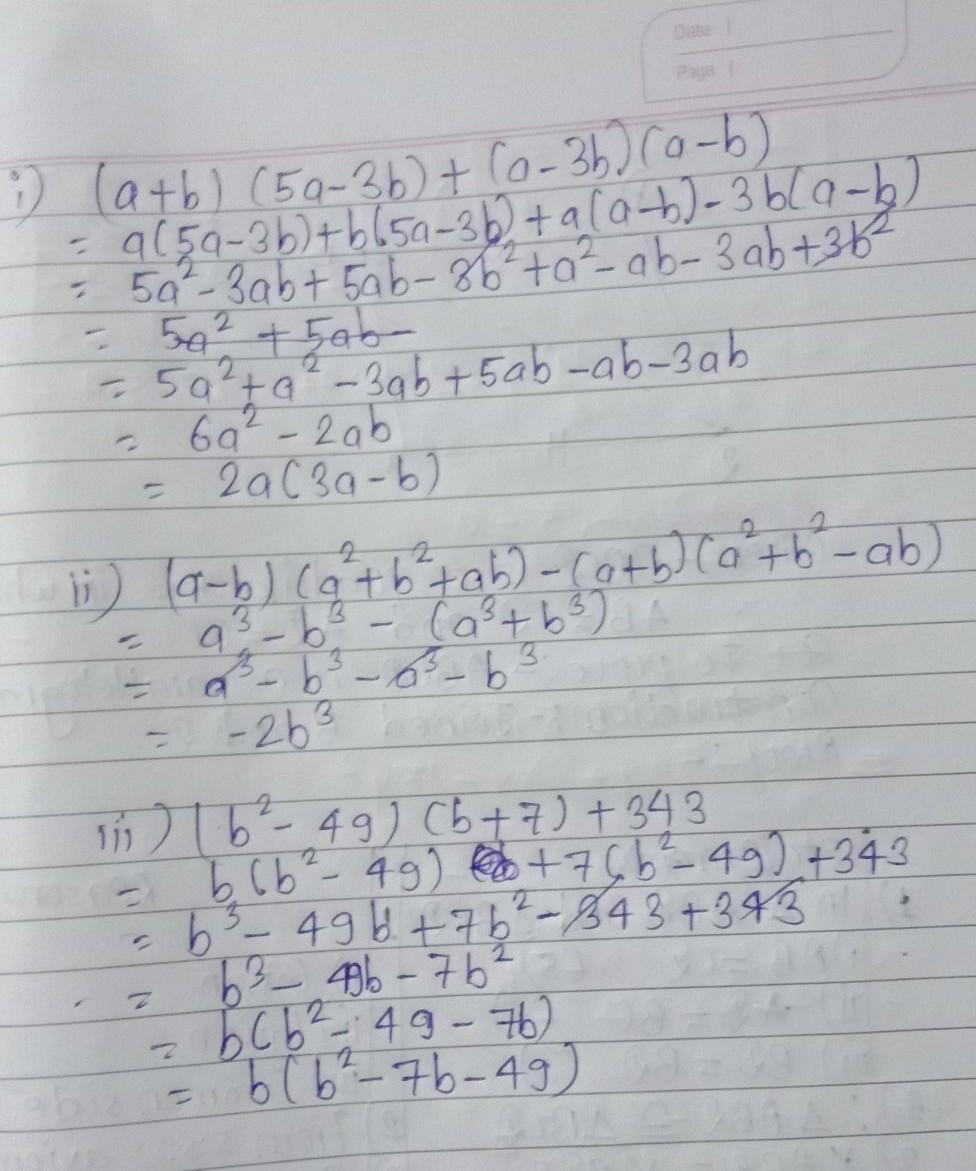 Date
Page
i) (a+b) (5a-3b) + (a-3b) (a-b)
= a(5a-3b)+b(5a-3b)+a(a-b)-3b(a-b)
= 5a²-3ab+5ab-3b²+a²-ab-3ab+3b²
= 5a²+5ab-
= 5a²+a²-3ab+5ab-ab-3ab
= 6a²-2ab
= 2a(3a-b)
ii) (a-b) (a²+b²+ab)-(a+b)(a²+b²-ab)
= a³-b³ - (a³+b³)
= a³-b³-a³-b³
= -2b³
iii) (b²-49) (b+7) + 343
= b(b²-49) +7(b²-49)+343
= b³-49b+7b²-343+343
= b³-49b-7b²
= b(b²-49-7b)
= b(b²-7b-49)